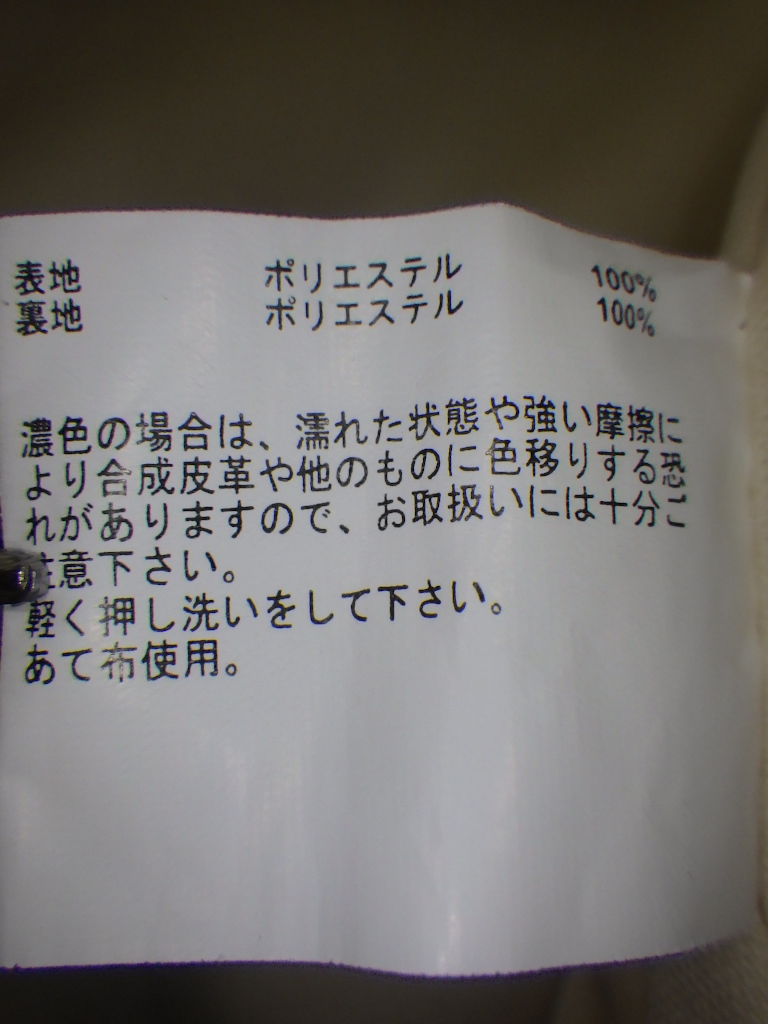 表地 ポリエステル 100%
裏地 ポリエステル 100%
濃色の場合は、濡れた状態や強い摩擦に
より合成皮革や他のものに色移りする恐
れがありますので、お取扱いには十分ご
注意下さい。
軽く押し洗いをして下さい。
あて布使用。